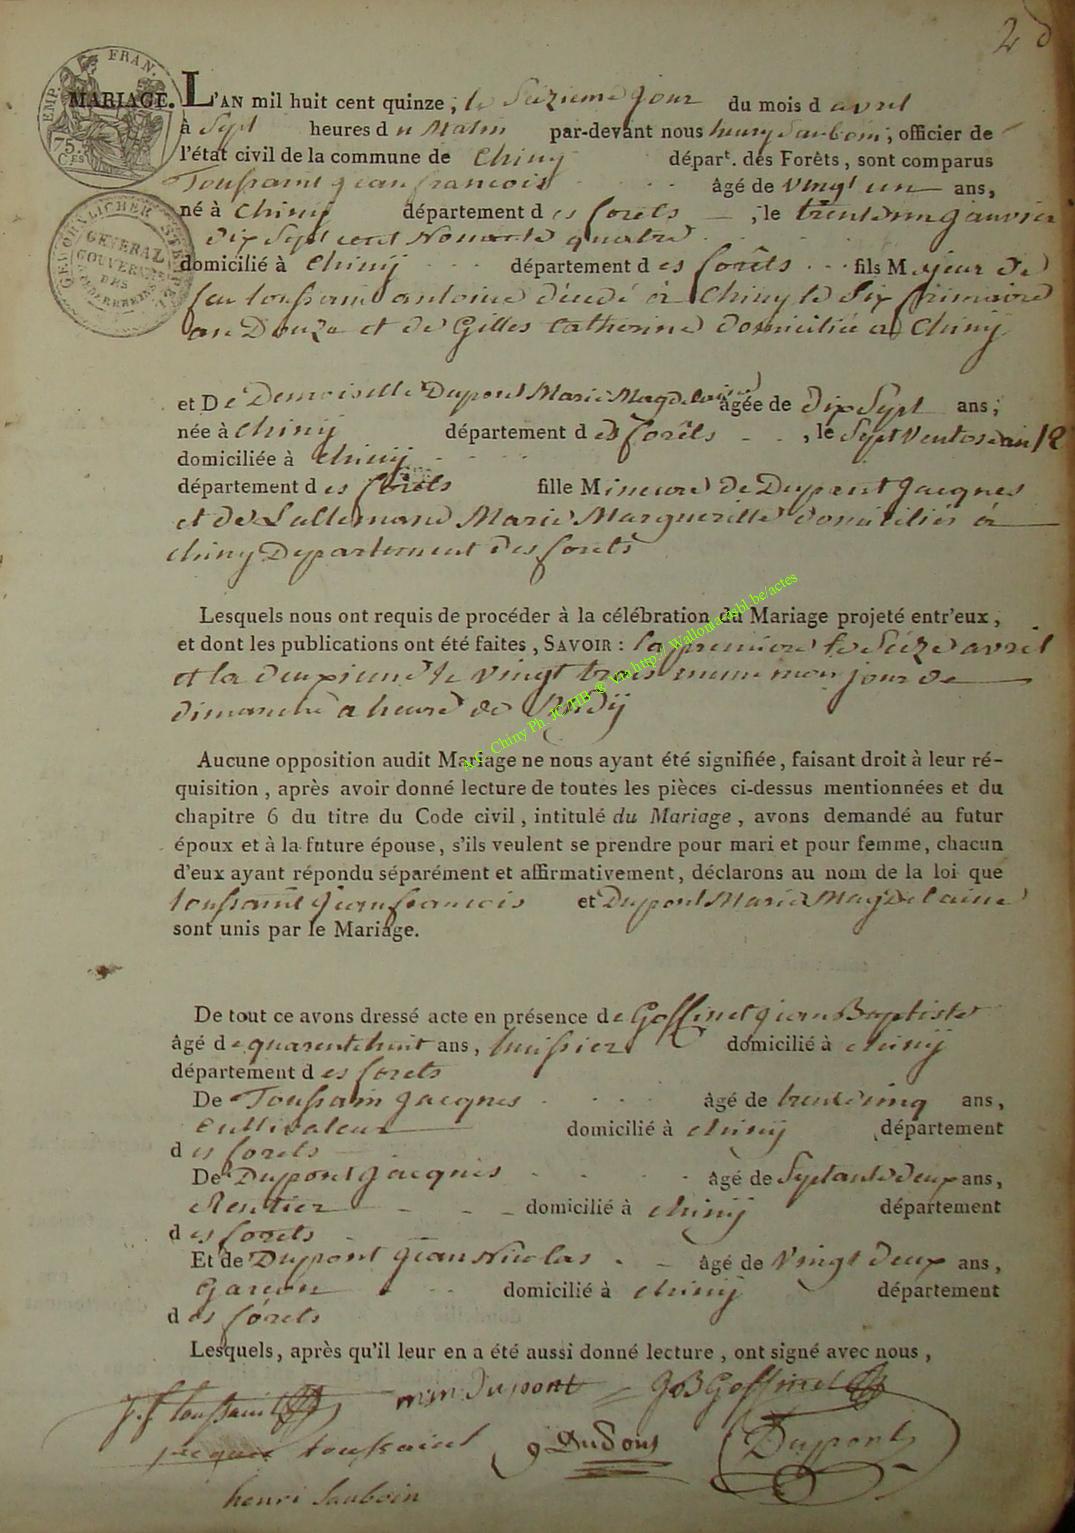 2
EMP. FRAN.
75.
C.ES
GEWOEHNLICHER STEMPEL
GENERAL
GOUVERNEMT
DES
MARIAGE. L'AN mil huit cent quinze, le Seizieme jour du mois d avril
à Sept heures d u Matin par-devant nous henry Sauboin, officier de
l'état civil de la commune de Chiny départ. des Forêts, sont comparus
Toussaint jean francois âgé de vingt un ans,
né à Chiny département d es forets, le trente un janvier
dix Sept cent Nonante quatre
domicilié à Chiny département d es forêts fils M ajeur de
feu toussaint antoine décédé à Chiny le Six frimaire
an Douze et de Gilles Catherine domiciliée a Chiny
et D e Demoiselle Dupont Marie Magdelaine âgée de dix Sept ans,
née à Chiny département d es forêts, le Sept Ventose
domiciliée à Chiny
département d es forêts fille M ineure de Dupont Jacques
et de Lallemand Marie Margueritte domiciliés à
chiny Departement des forets
Lesquels nous ont requis de procéder à la célébration du Mariage projeté entr'eux,
et dont les publications ont été faites, SAVOIR : la premiere le Seize avril
et la deuxieme le vingt trois meme mois jour de
dimanche a heure de Midy
A.E. Chiny Ph. JCHB-g via http:// Wallonia-asbl.be/actes
Aucune opposition audit Mariage ne nous ayant été signifiée, faisant droit à leur ré-
quisition, après avoir donné lecture de toutes les pièces ci-dessus mentionnées et du
chapitre 6 du titre du Code civil, intitulé du Mariage, avons demandé au futur
époux et à la future épouse, s'ils veulent se prendre pour mari et pour femme, chacun
d'eux ayant répondu séparément et affirmativement, déclarons au nom de la loi que
toussaint jean francois et Dupont Marie Magdelaine
sont unis par le Mariage.
De tout ce avons dressé acte en présence de Goffinet jean Baptiste
âgé d e quarente huit ans, huissier domicilié à chiny
département d es forets
De Toussain jacques âgé de trente cinq ans,
Cultivateur domicilié à chiny département
d es forets
De Dupont jacques âgé de Septante deux ans,
Rentier domicilié à chiny département
d es forets
Et de Dupont jean Nicolas âgé de Vingt deux ans,
Garcon domicilié à chiny département
d es forets
Lesquels, après qu'il leur en a été aussi donné lecture, ont signé avec nous,
j.f toussaint mm dupont JB Goffinet
jacques toussaint j Dupont Dupont
henri Sauboin